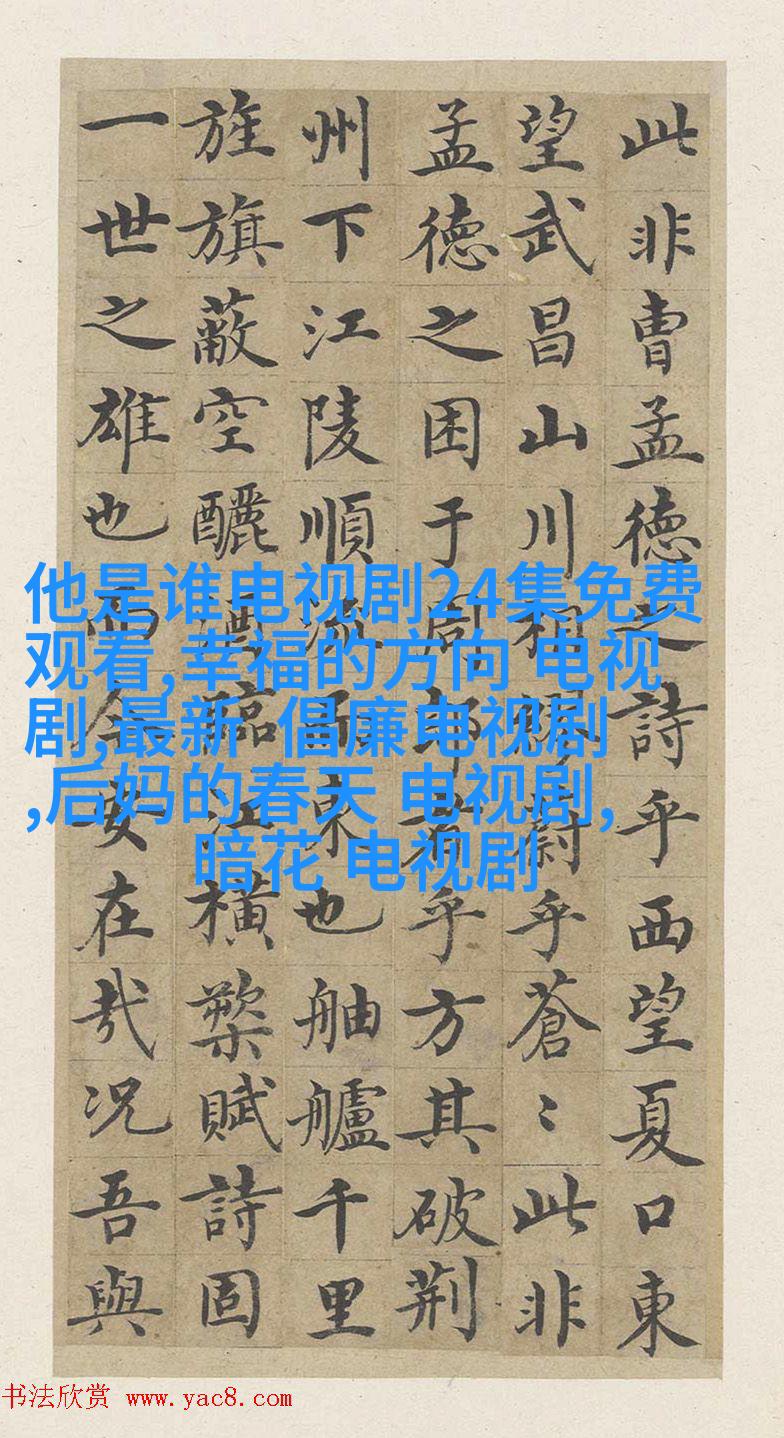 此非曹孟德之詩乎西望夏口東
望武昌山川相繆蔚乎蒼〻此非
孟德之困于周郎者乎方其破荊
州下江陵順流而東也舳艫千里
旌旗蔽空釃酒臨江橫槊賦詩固
一世之雄也而今安在哉況吾與
他是谁电视剧24集免费
观看,幸福的方向 电视
剧,最新  倡廉电视剧
,后妈的春天 电视剧,
暗花 电视剧
书法欣赏 www.yac8.com